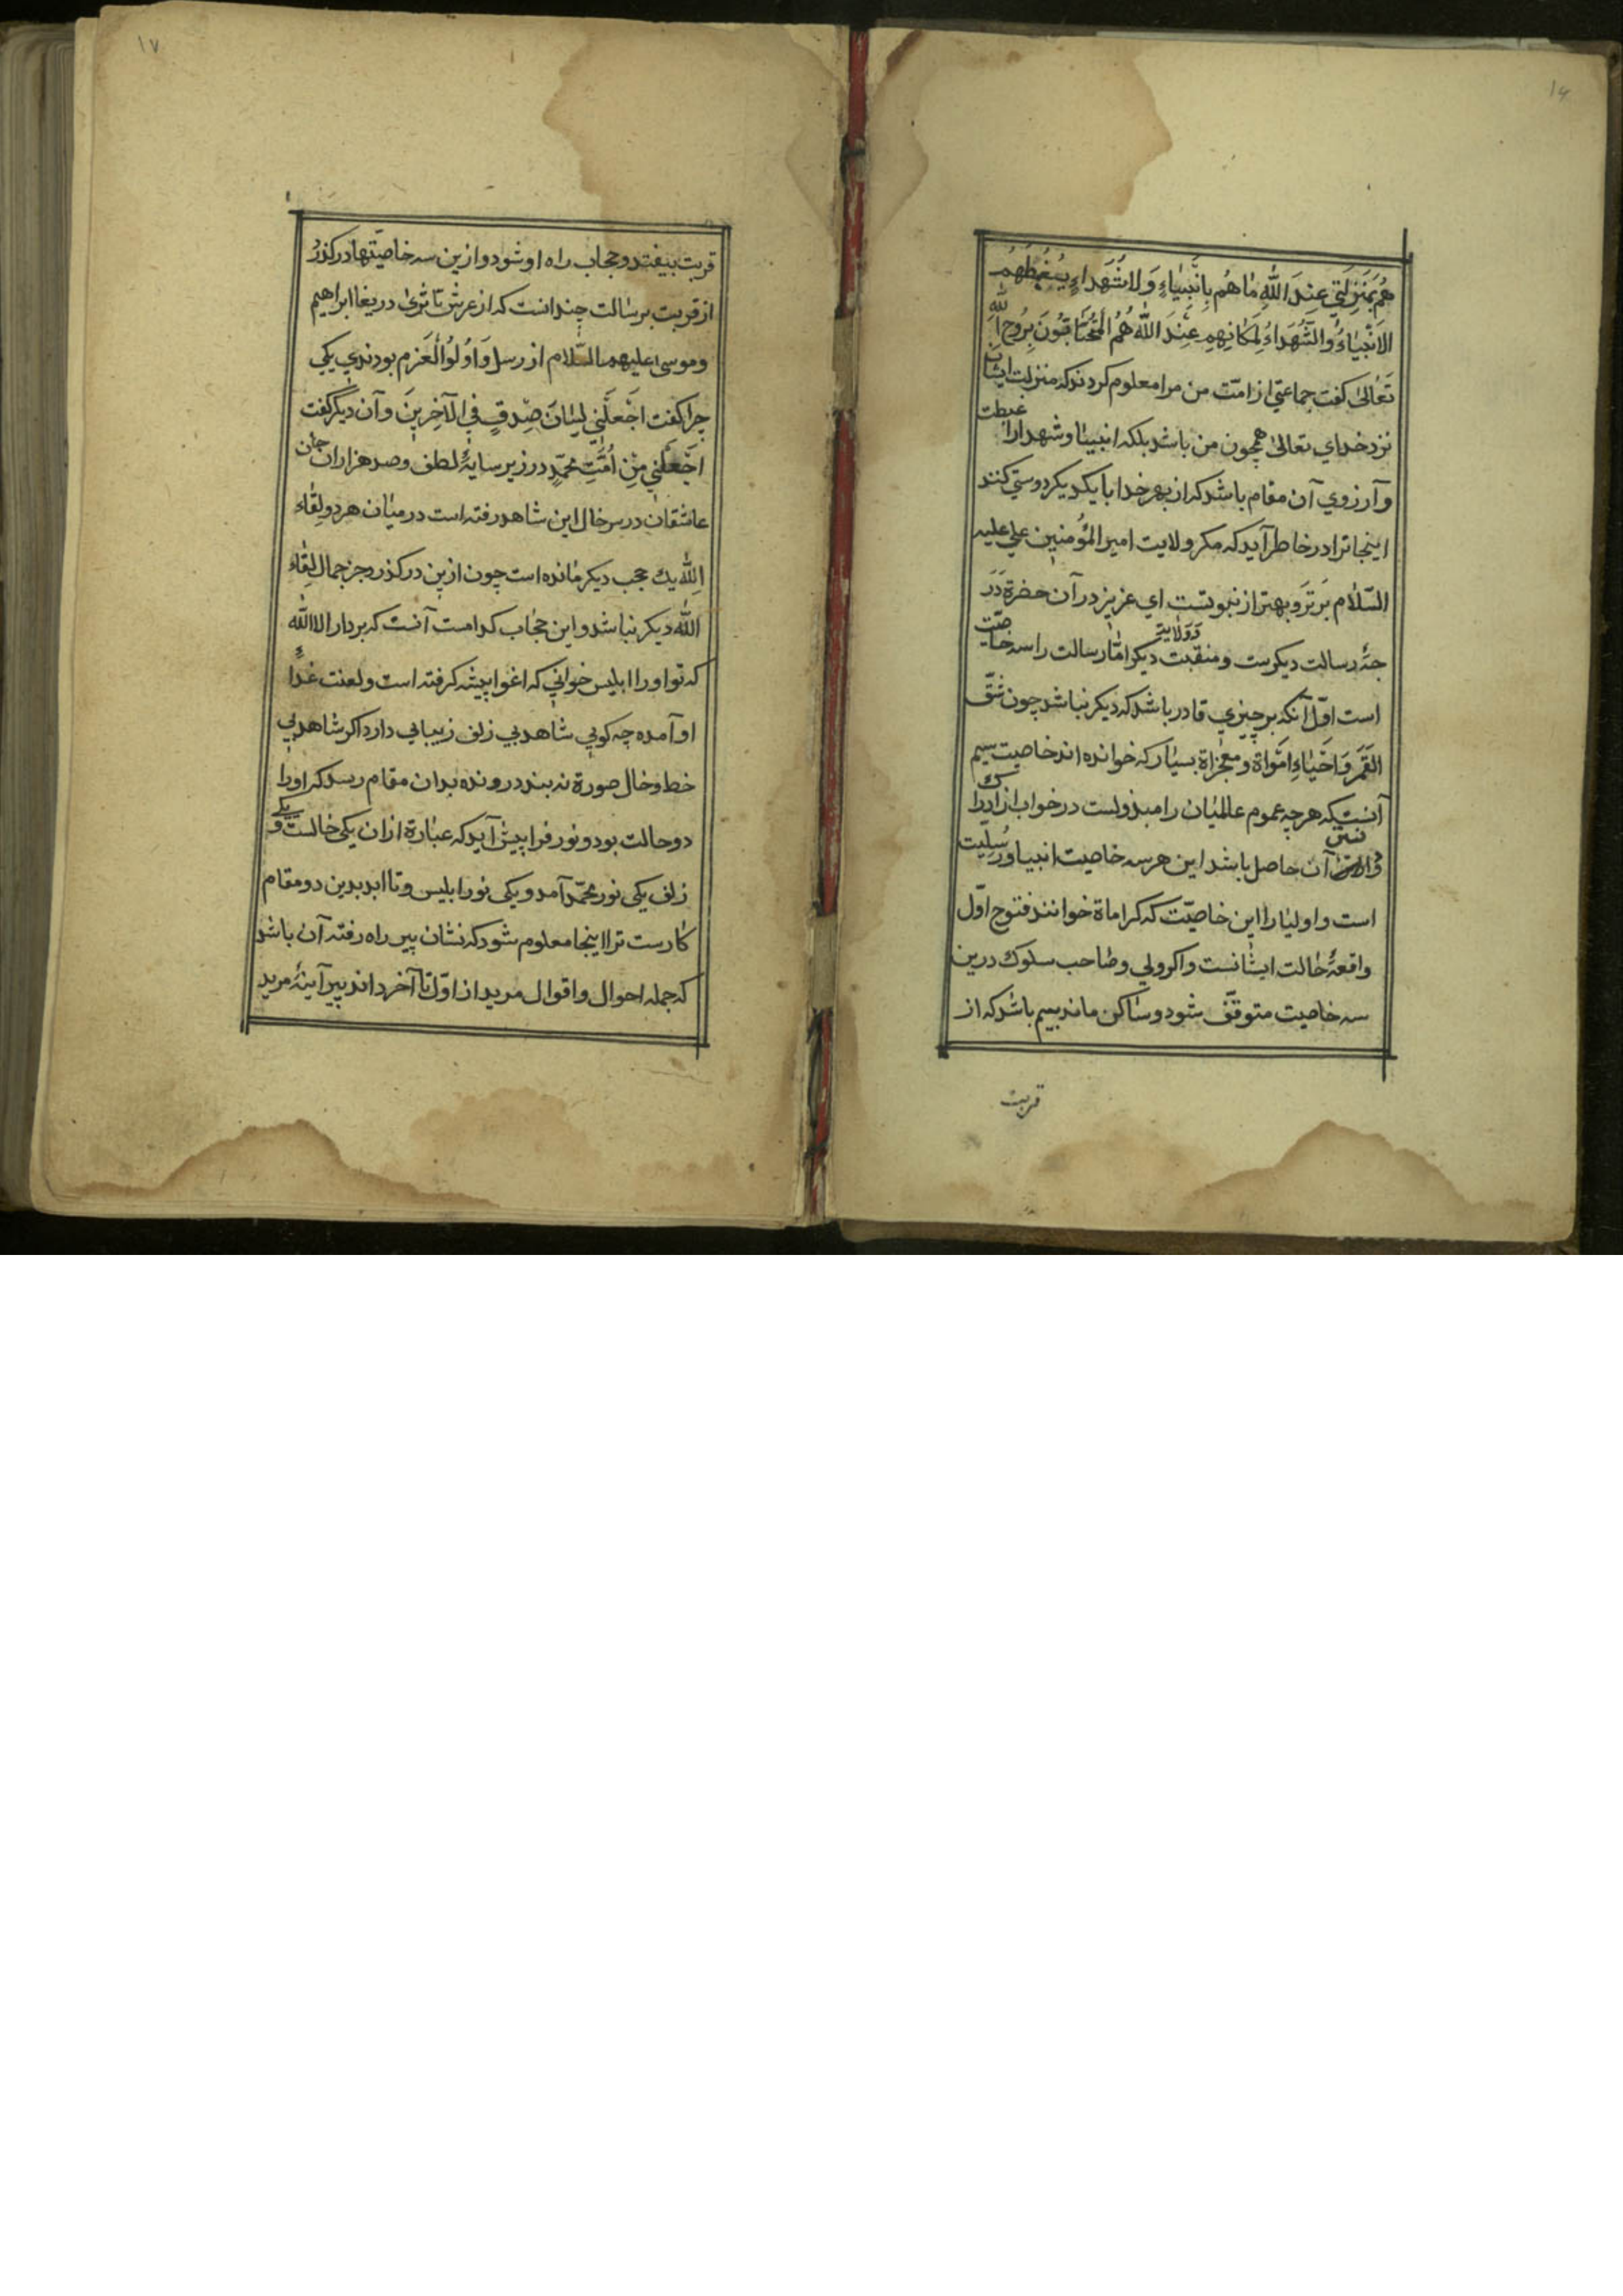 ۱۶
هُم بِمَنزِلَتي عِندَ اللّٰهِ مٰاهُم بِاَنْبِيٰاءٍ وَلا شُهَداءٍ يُغبِطُهُم
الاَنْبِيٰاءُ وَالشُّهَدٰاءُ لِمَكٰانِهِم عِنْدَ اللّٰهِ هُمُ المُتَحٰابّونَ بِرُوحِ اللّٰهِ
تَعٰالیٰ كفت جماعتي از امّت من مرا معلوم كردند كه منزلت ایشان
نزد خداي تعالیٰ همچون من باشد بلكه انبیا و شهدا را غبطت
و آرزوي آن مقام باشد كه از بهر خدا با یكدیكر دوستي كنند
اینجا ترا در خاطر آید كه مكر ولایت امیر المؤمنین علي علیه
السّلام برتر و بهتر از نبوتست اي عزیز در آن حضرة درَ
جهٔ رسالت دیكرست و منقبت و ولایة دیكر امّا رسالت را سه خاصّت
است اوّل آنكه بر چیزي قادر باشد كه دیكر نباشد چون شقّ
القَمَر وَ اَحْیٰاءِ اَمْوٰاة و معجزاة بسیار كه خوانده اند خاصیت سیم
آنستكه هرچه عموم عالمیان را مبذولست در خواب
آن حاصل باشد این هر سه خاصیت انبیا و رُسُلیت
است و اولیا را این خاصیّت كه كراماة خوانند فتوح اوّل
واقعهٔ حٰالت ایشٰانست و اكر ولي و صٰاحب سلوك درین
سه خاصیت متوقّف شود و سٰاكن ماند بیم باشد كه از
قربت
۱۷
قربت بیفتد و حجاب راه او شود و ازین سه خاصیّتها در كذرد
از قربت برسالت چندانست كه از عرش تا ثریٰ دریغا ابراهیم
و موسیٰ علیهم السّلام از رسل وَ اوُلوُا العَزم بودندي یكي
چرا كفت اجْعَلْني لِسٰانَ صِدقٍ فِي الآخِرینَ و آن دیكر كفت
اجْعَلْني مِنْ اُمَّتِ محمّدٍ در زیر سایهٔ لطف و صد هزاران جان
عاشقان در سر خال این شاهد رفته است در میٰان هر دو لقٰاء
اللّٰه یك حجب دیكر مٰانده است چون ازین در كذرد جز جمال لِقٰاء
اللّٰه دیكر نباشد و این حجٰاب كدامست آنست كه بر دار الا اللّٰه
كه تو او را ابلیس خواني كه اغوا پیشه كرفته است و لعنت غذاءِ
او آمده چه كویي شاهد بي زلف زیبایي دارد اكر شاهد بي
خط و خال صورة نه بندد رونده بدان مقام رسد كه او را
دو حالت بود و نور فرا پیش آید كه عبٰارة ازان یكي خالست و یكي
زلف یكي نور محمّد آمد و یكي نور ابلیس و تا ابد بدین دو مقام
كٰارست ترا اینجا معلوم شود كه نشان پیر راه رفته آن باشد
كه جمله احوال و اقوال مرید از اوّل تا آخر داند پیر آینهٔ مرید